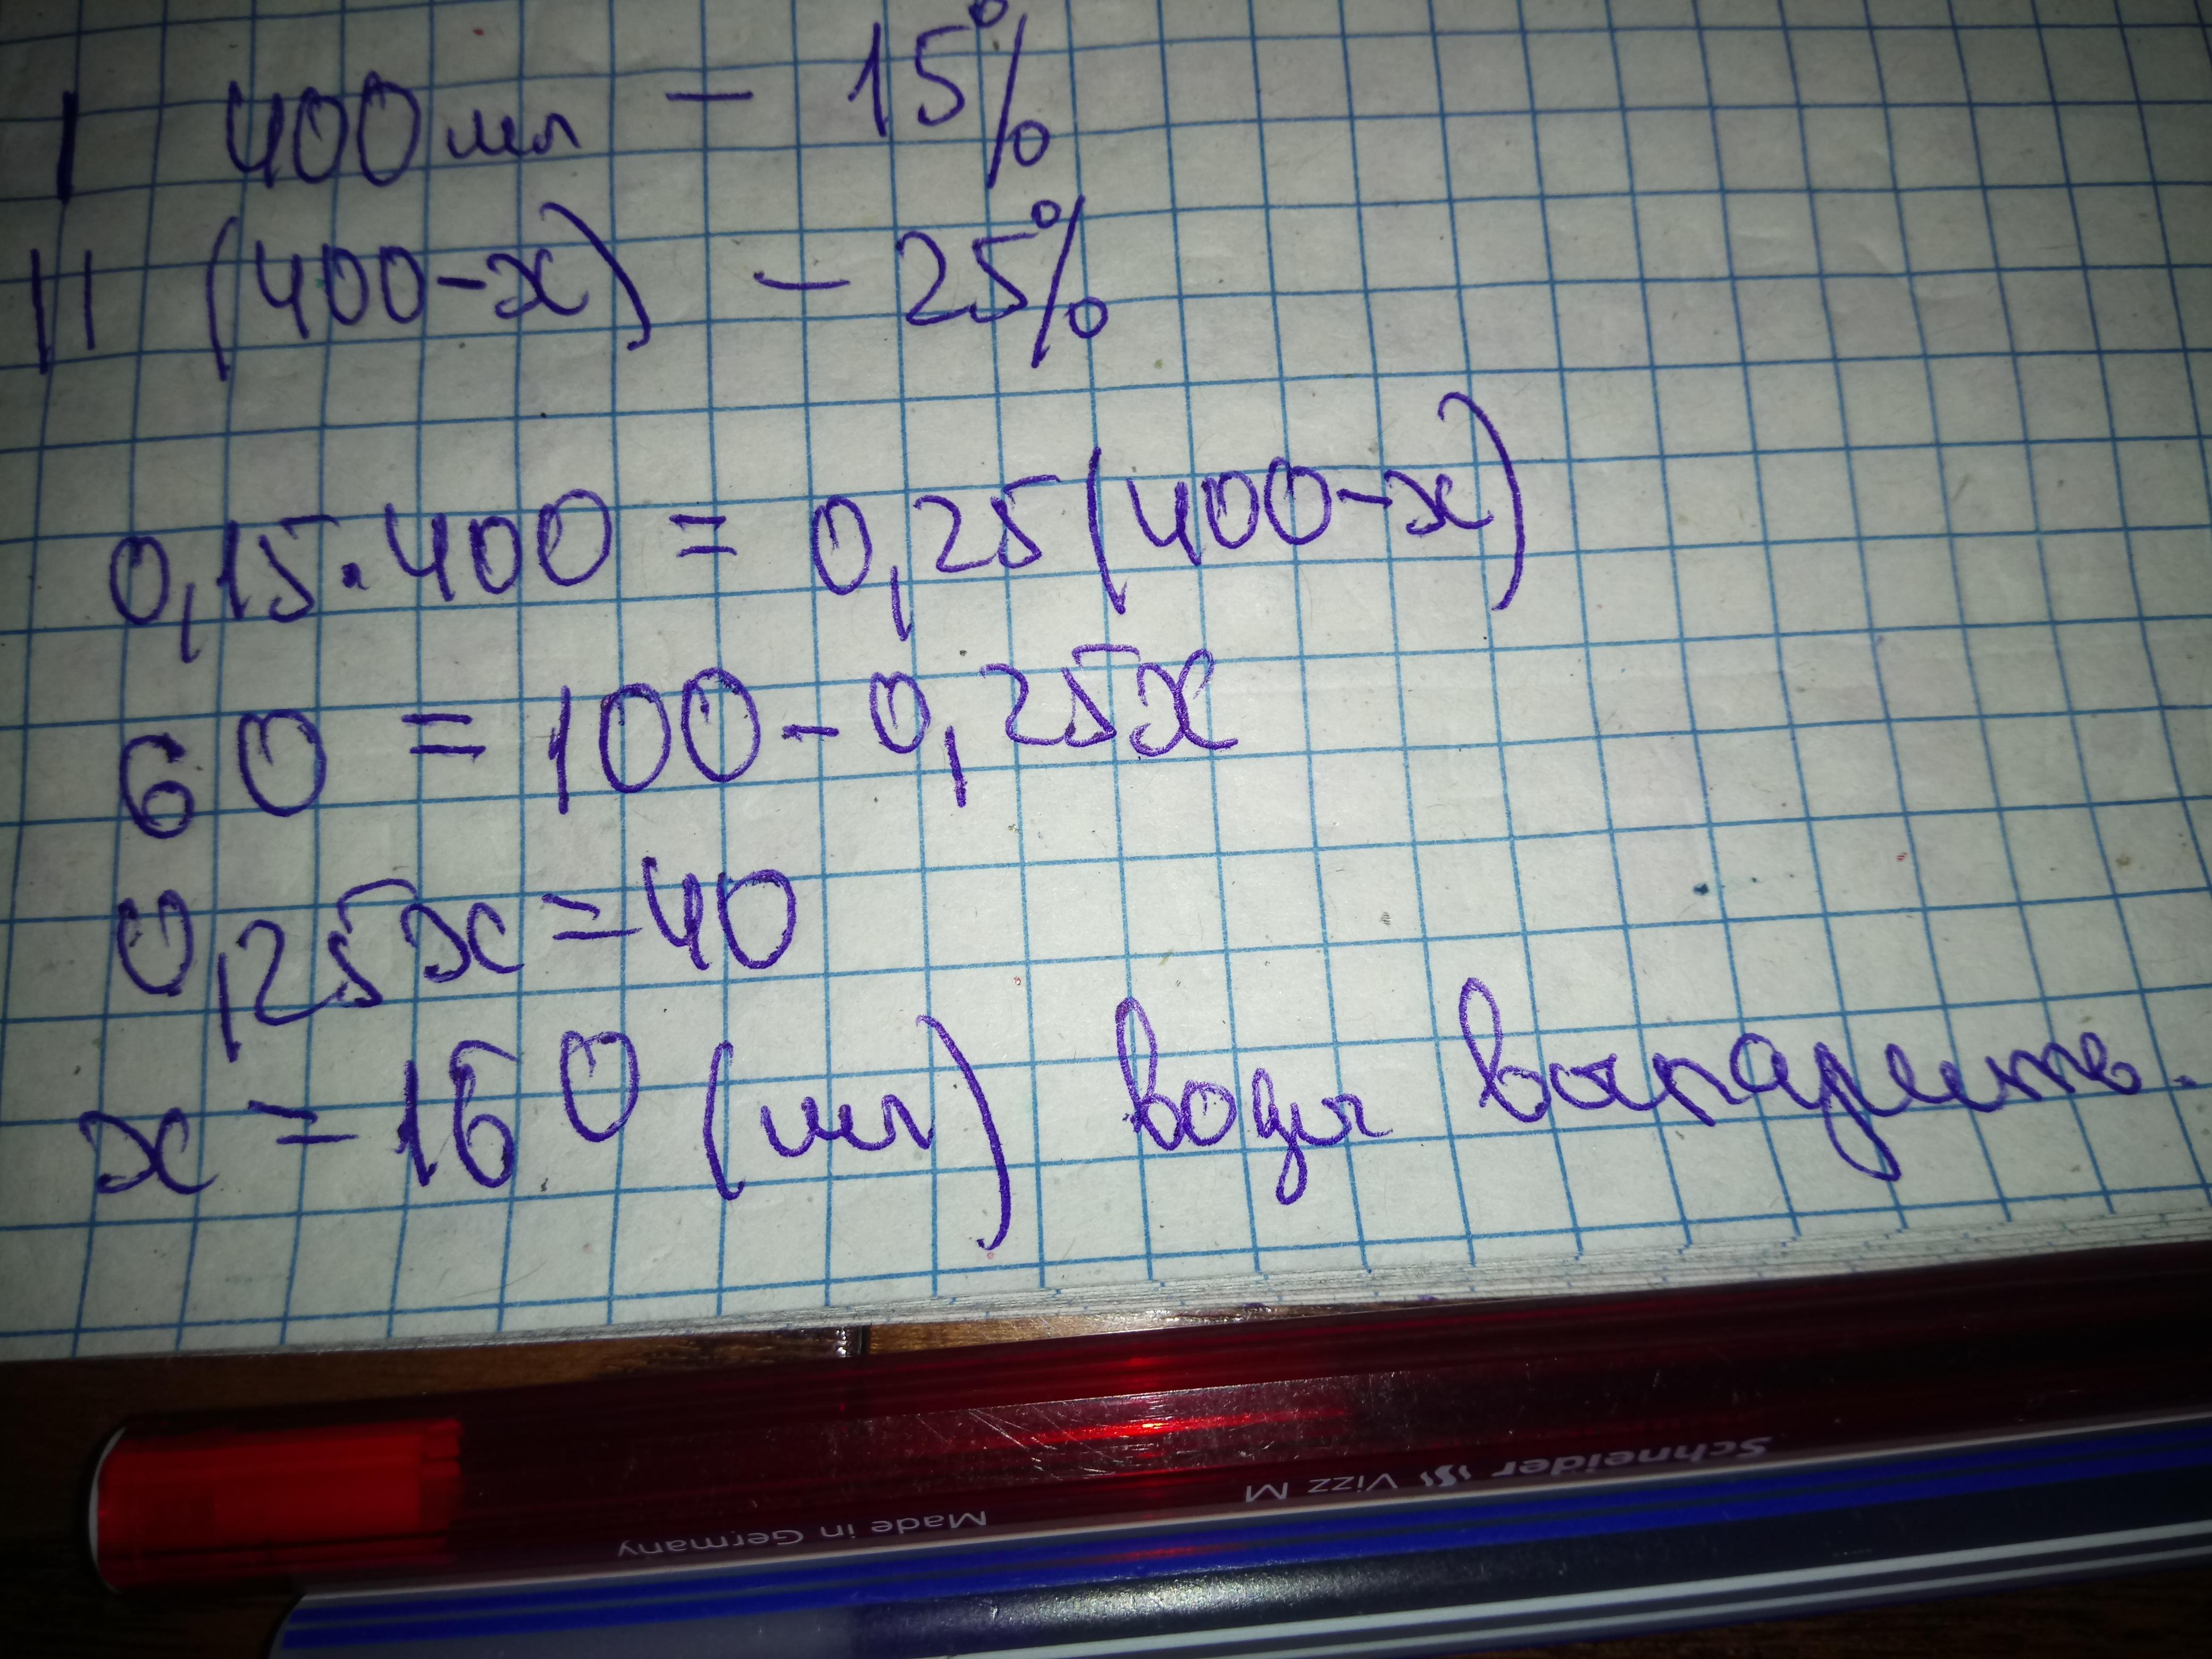 I 400 мл — 15%
II (400-x) — 25%
0,15·400 = 0,25(400-x)
60 = 100-0,25x
0,25x=40
x = 160 (мл) воды выпарить.
Schneider Vizz M
Made in Germany